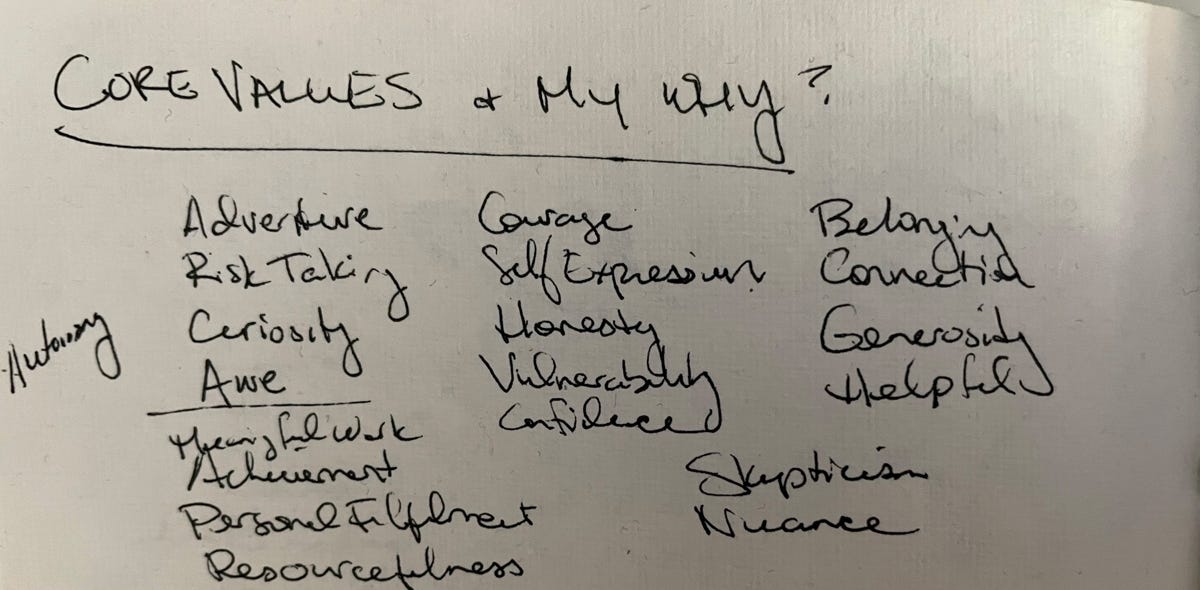 CORE VALUES & MY WHY?
Adventure
Risk Taking
Curiosity
Awe
Autonomy
Meaningful Work
Achievement
Personal Fulfilment
Resourcefulness
Courage
Self Expression
Honesty
Vulnerability
Confidence
Belonging
Connection
Generosity
Helpful
Skepticism
Nuance